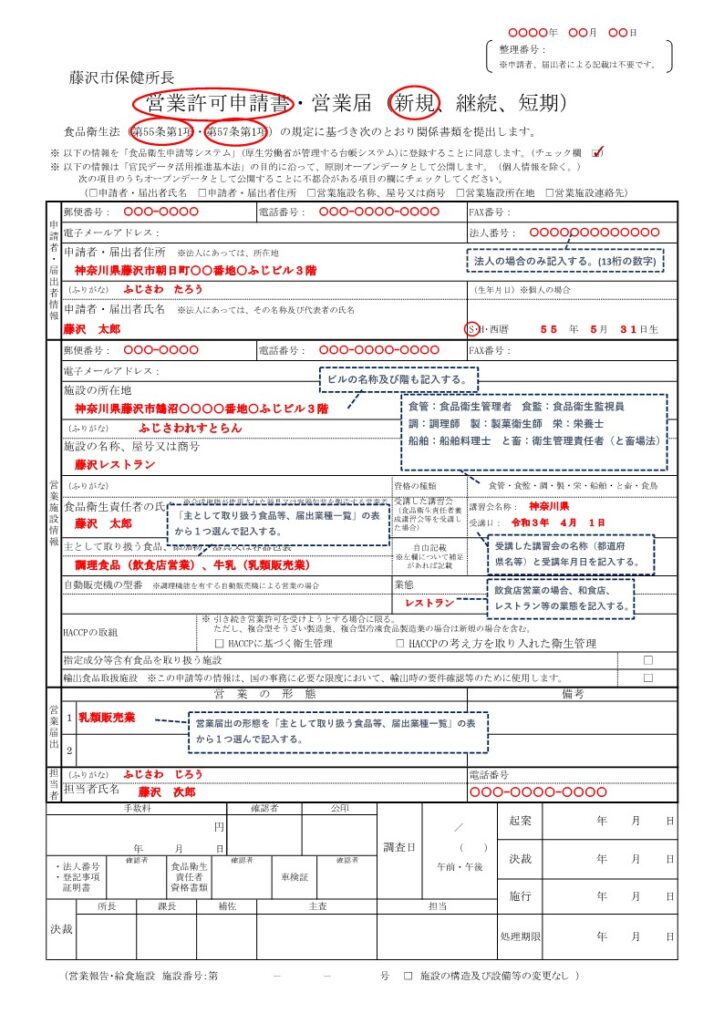 〇〇〇〇年 〇〇月 〇〇日
整理番号：
※申請者、届出者による記載は不要です。
藤沢市保健所長
営業許可申請書・営業届（新規、継続、短期）
食品衛生法（第55条第1項・第57条第1項）の規定に基づき次のとおり関係書類を提出します。
※ 以下の情報を「食品衛生申請等システム」(厚生労働省が管理する台帳システム)に登録することに同意します。(チェック欄 ☑
※ 以下の情報は「官民データ活用推進基本法」の目的に沿って、原則オープンデータとして公開します。（個人情報を除く。）
次の項目のうちオープンデータとして公開することに不都合がある項目の欄にチェックしてください。
（□申請者・届出者氏名 □申請者・届出者住所 □営業施設名称、屋号又は商号 □営業施設所在地 □営業施設連絡先）
申請者・届出者情報
郵便番号： 〇〇〇-〇〇〇〇 電話番号： 〇〇〇-〇〇〇〇-〇〇〇〇 FAX番号：
電子メールアドレス： 法人番号： 〇〇〇〇〇〇〇〇〇〇〇〇〇
申請者・届出者住所 ※法人にあっては、所在地
法人の場合のみ記入する。(13桁の数字)
神奈川県藤沢市朝日町〇〇番地〇ふじビル３階
（ふりがな） ふじさわ たろう （生年月日）※個人の場合
申請者・届出者氏名 ※法人にあっては、その名称及び代表者の氏名
藤沢 太郎 S・H・西暦 ５５ 年 ５月 ３１日生
営業施設情報
郵便番号： 〇〇〇-〇〇〇〇 電話番号： 〇〇〇-〇〇〇〇-〇〇〇〇 FAX番号：
電子メールアドレス：
ビルの名称及び階も記入する。
施設の所在地
神奈川県藤沢市鵠沼〇〇〇〇番地〇ふじビル３階
食管：食品衛生管理者 食監：食品衛生監視員
調：調理師 製：製菓衛生師 栄：栄養士
船舶：船舶料理士 と畜：衛生管理責任者（と畜場法）
（ふりがな） ふじさわれすとらん
施設の名称、屋号又は商号
藤沢レストラン
（ふりがな） 資格の種類 食管・食監・調・製・栄・船舶・と畜・食鳥
食品衛生責任者の氏
藤沢 太郎
受講した講習会
（食品衛生責任者養成講習会等を受講した場合）
講習会名称： 神奈川県
受講日： 令和３年 ４月 １日
「主として取り扱う食品等、届出業種一覧」の表
から１つ選んで記入する。
受講した講習会の名称（都道府
県名等）と受講年月日を記入する。
主として取り扱う食品、
調理食品（飲食店営業）、牛乳（乳類販売業）
自由記載
※左欄について補足があれば記載
自動販売機の型番 ※調理機能を有する自動販売機による営業の場合
業態
レストラン
飲食店営業の場合、和食店、
レストラン等の業態を記入する。
HACCPの取組
※ 引き続き営業許可を受けようとする場合に限る。
ただし、複合型そうざい製造業、複合型冷凍食品製造業の場合は新規の場合を含む。
□ HACCPに基づく衛生管理 □ HACCPの考え方を取り入れた衛生管理
指定成分等含有食品を取り扱う施設 □
輸出食品取扱施設 ※この申請等の情報は、国の事務に必要な限度において、輸出時の要件確認等のために使用します。 □
営業届出
営 業 の 形 態 備考
1 乳類販売業
営業届出の形態を「主として取り扱う食品等、届出業種一覧」の表
から１つ選んで記入する。
2
担当者
（ふりがな） ふじさわ じろう 電話番号
担当者氏名 藤沢 次郎 〇〇〇-〇〇〇〇-〇〇〇〇
手数料 確認者 公印
円
年 月 日
調査日
／
（ ）
午前・午後
起案 年 月 日
決裁 年 月 日
施行 年 月 日
処理期限 年 月 日
・法人番号
・登記事項
証明書
確認者
食品衛生
責任者
資格書類
確認者
車検証
確認者
決裁
所長 課長 補佐 主査 担当
（営業報告･給食施設 施設番号:第 － － 号 □ 施設の構造及び設備等の変更なし ）